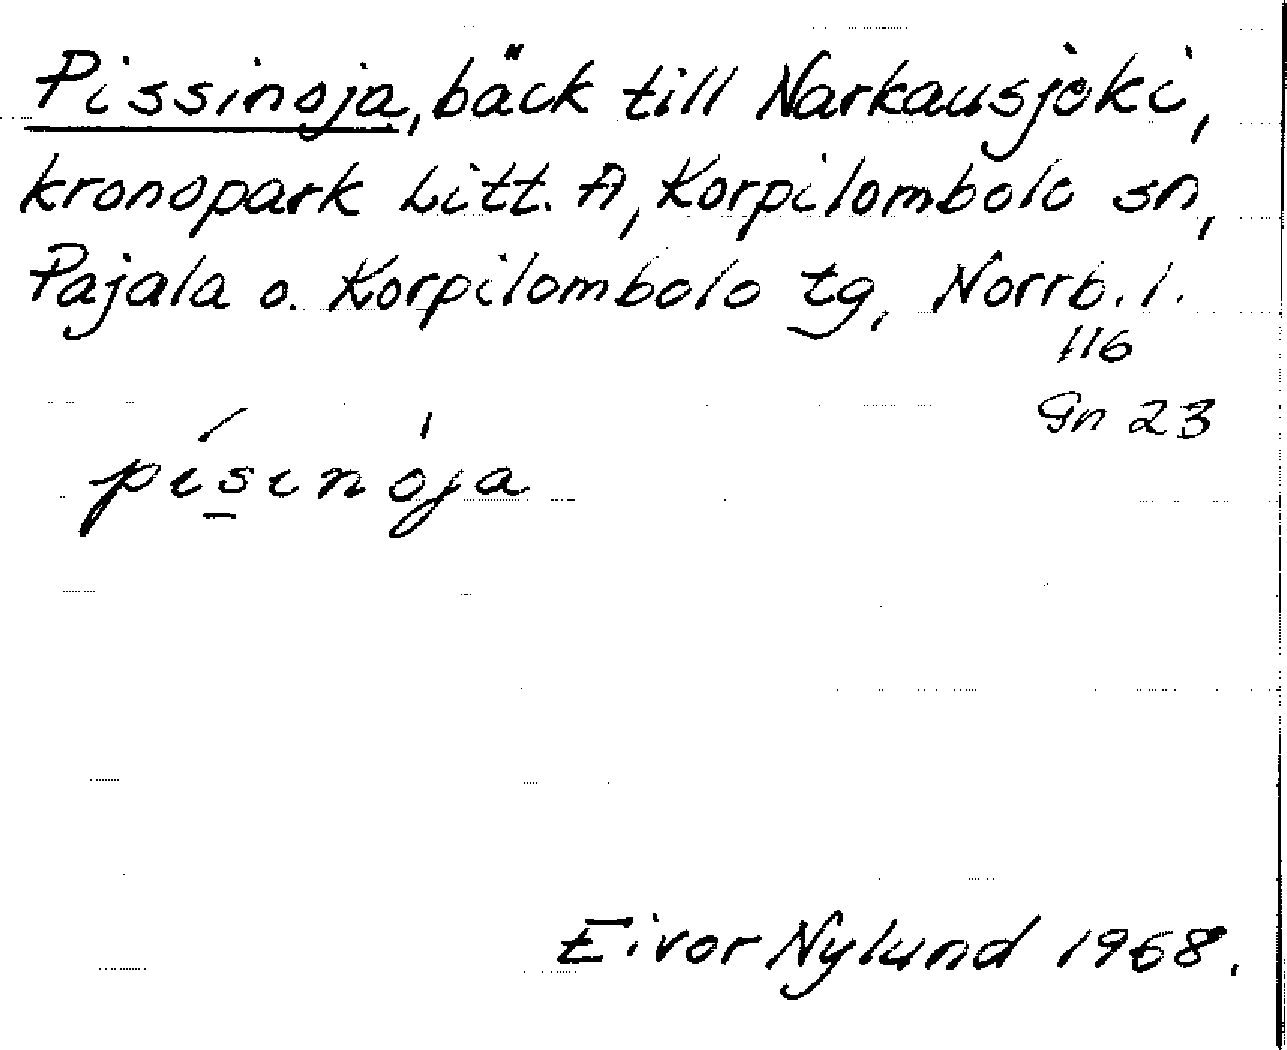 Pissinoja, bäck till Narkausjoki,
kronopark Litt. A, Korpilombolo sn,
Pajala o. Korpilombolo tg, Norrb. l.
116
Gn 23
pi´s̲inòja
Eivor Nylund 1968.